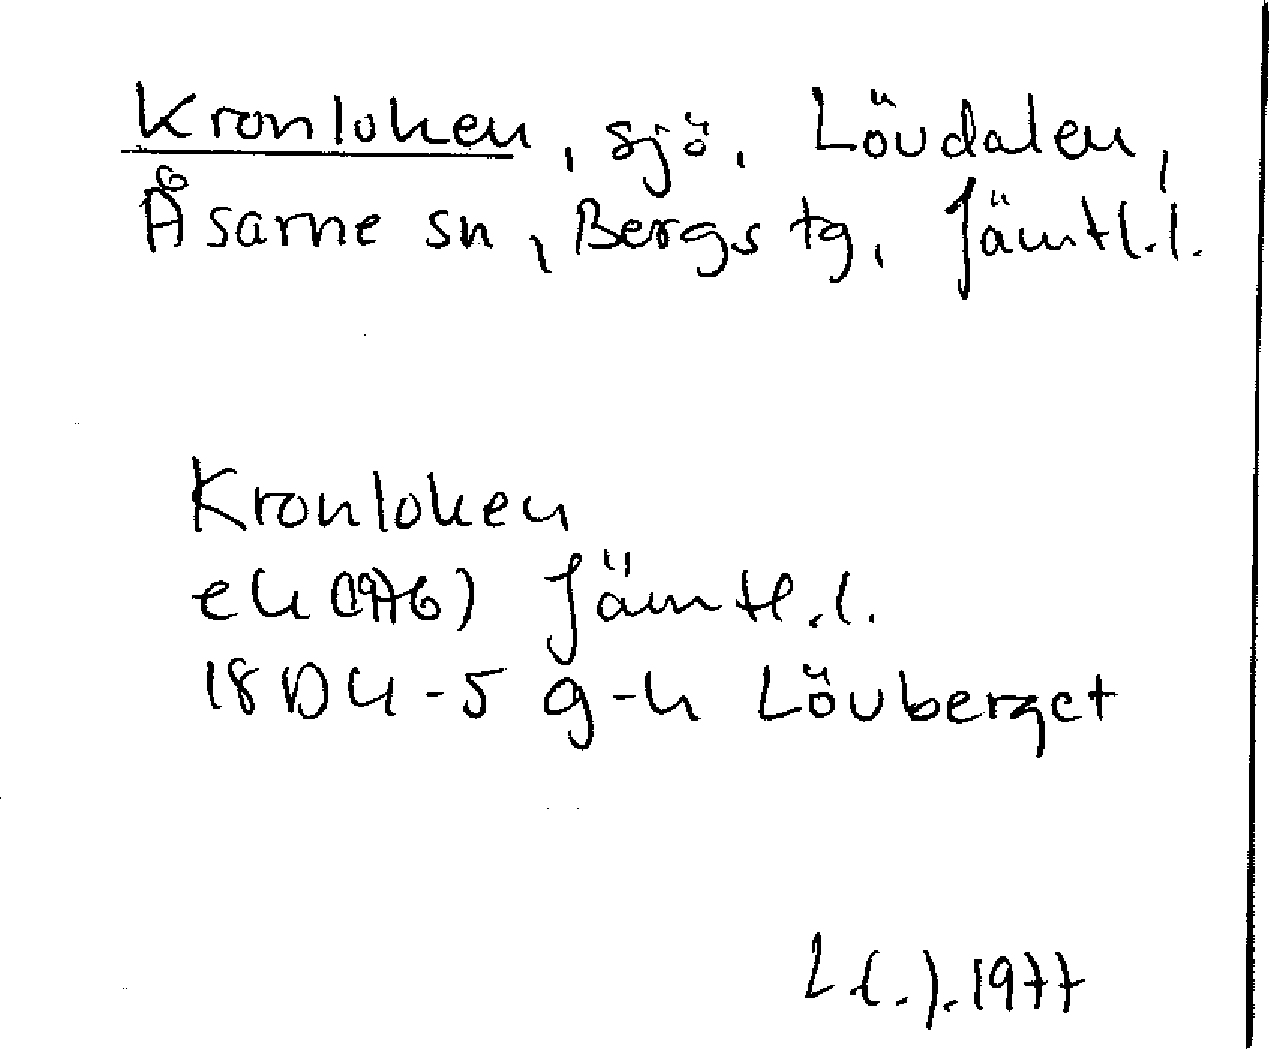 Kronloken, sjö, Lövdalen,
Åsarne sn, Bergs tg, Jämtl.l.
Kronloken
ek (1976) Jämtl.l.
18D 4-5 g-h Lövberget
1977